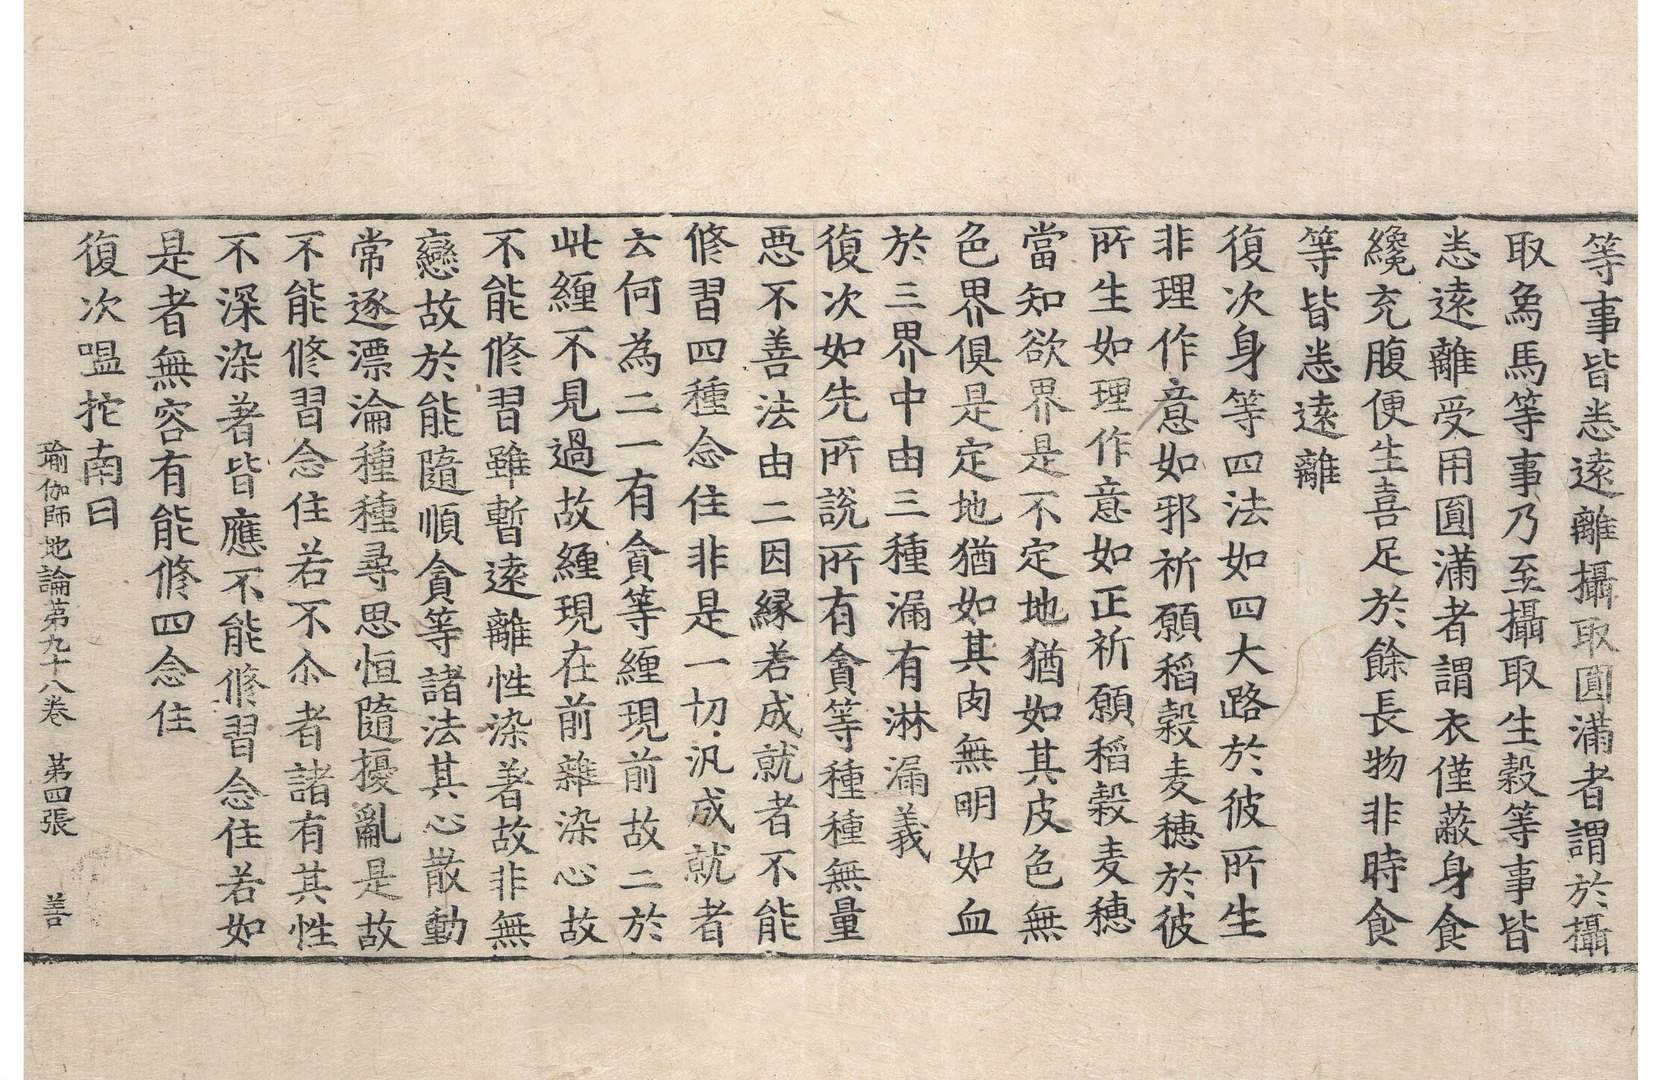 等事皆悉遠離攝取圓滿者謂於攝
取象馬等事乃至攝取生穀等事皆
悉遠離受用圓滿者謂衣僅蔽身食
纔充腹便生喜足於餘長物非時食
等皆悉遠離
復次身等四法如四大路於彼所生
非理作意如邪祈願稻穀麦穗於彼
所生如理作意如正祈願稻穀麦穗
當知欲界是不定地猶如其皮色無
色界俱是定地猶如其肉無明如血
於三界中由三種漏有淋漏義
復次如先所說所有貪等種種無量
惡不善法由二因縁若成就者不能
修習四種念住非是一切汎成就者
云何為二一有貪等纏現前故二於
此纏不見過故纏現在前雜染心故
不能修習雖暫遠離性染著故非無
戀故於能隨順貪等諸法其心散動
常逐漂淪種種尋思恒隨擾亂是故
不能修習念住若不尒者諸有其性
不深染著皆應不能修習念住若如
是者無容有能修四念住
復次嗢拕南曰
瑜伽師地論第九十八卷 第四張 善